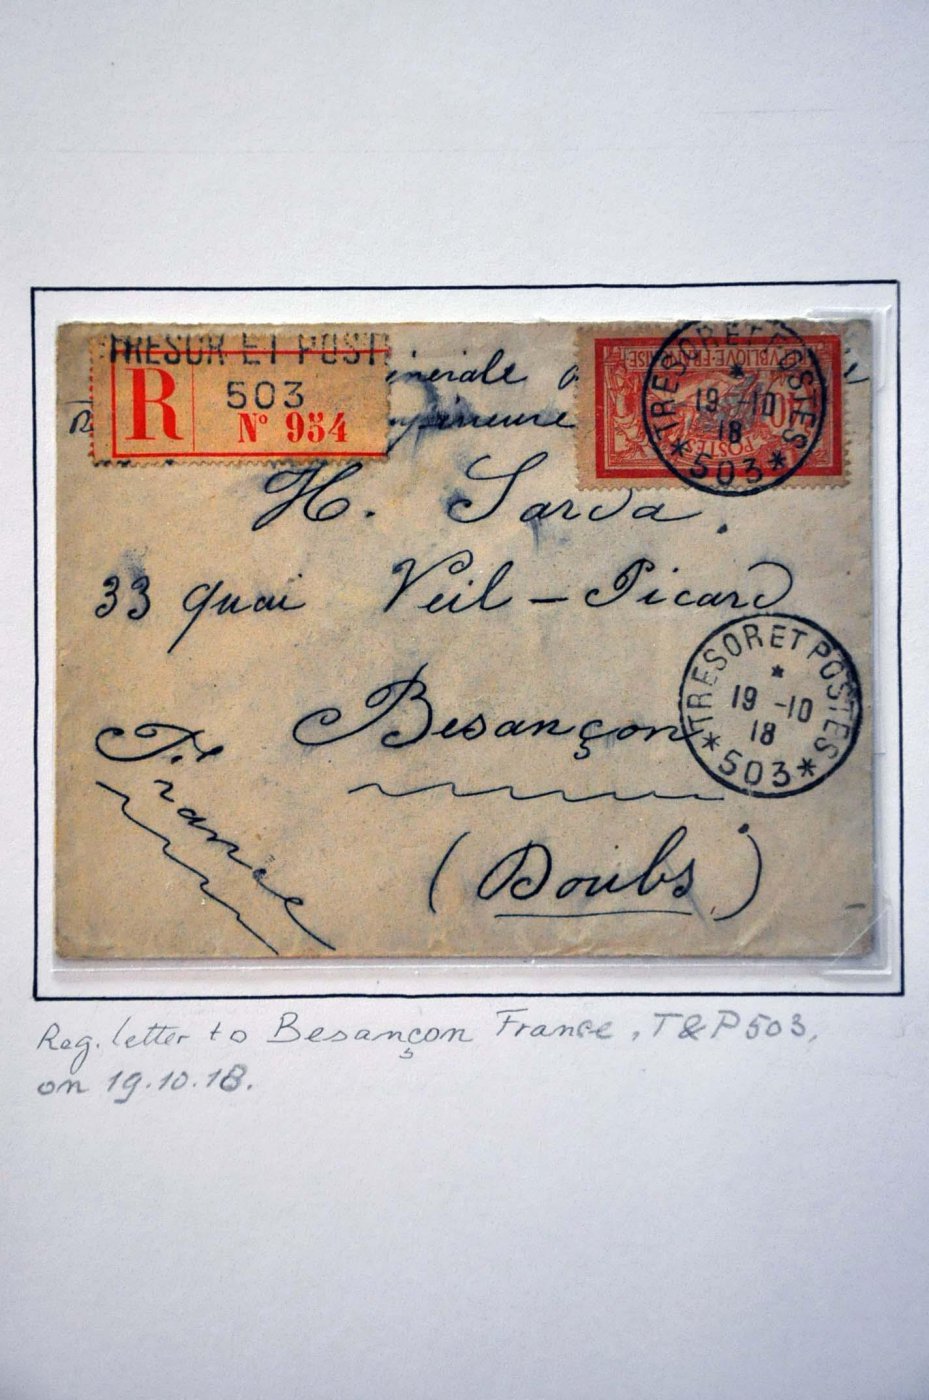 TRESOR ET POST
503
R
Nº 954
nérale
H. Sarda.
33 quai Veil-Picard
Besançon
France
(Doubs)
REPUBLIQUE FRANÇAISE
40
POSTES
TRESOR ET POSTES
19 -10
18
*503*
TRESOR ET POSTES
19 -10
18
*503*
Reg. letter to Besançon France, T&P503,
on 19.10.18.